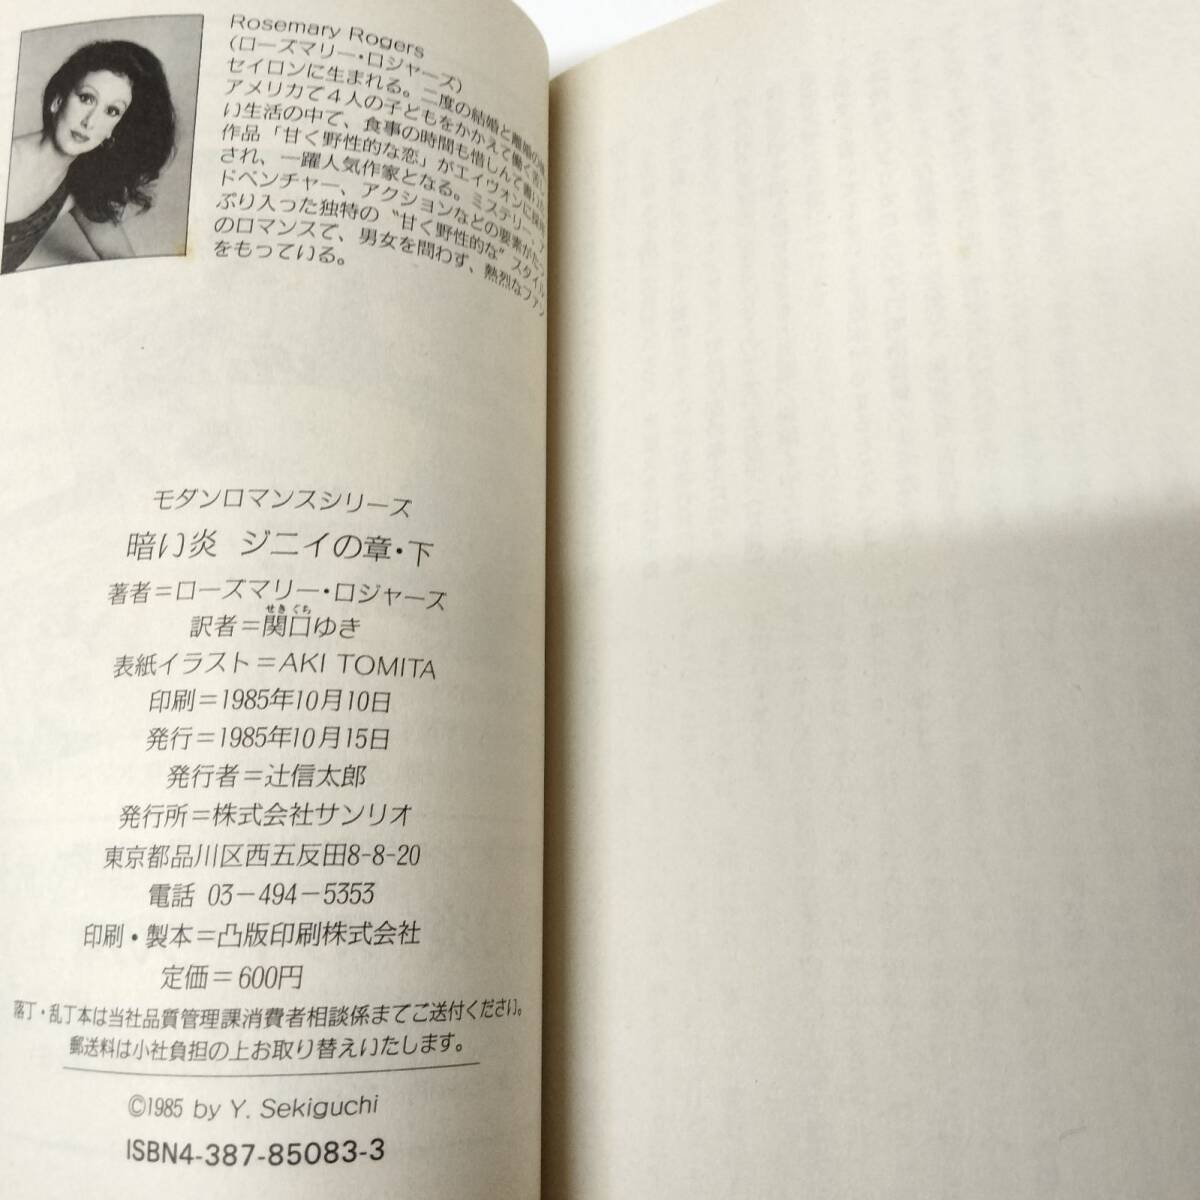 Rosemary Rogers
(ローズマリー・ロジャーズ)
セイロンに生まれる。二度の結婚と離婚の
アメリカで4人の子どもをかかえて働く
い生活の中で、食事の時間も惜しんで
作品「甘く野性的な恋」がエイヴォンに
され、一躍人気作家となる。ミステリー、ア
ドベンチャー、アクションなどの要素がたっ
ぷり入った独特の〝甘く野性的な〟スタイル
のロマンスで、男女を問わず、熱烈なファン
をもっている。
モダンロマンスシリーズ
暗い炎 ジニイの章・下
著者=ローズマリー・ロジャーズ
せき ぐち
訳者=関口ゆき
表紙イラスト=AKI TOMITA
印刷=1985年10月10日
発行=1985年10月15日
発行者=辻信太郎
発行所=株式会社サンリオ
東京都品川区西五反田8-8-20
電話 03-494-5353
印刷・製本=凸版印刷株式会社
定価=600円
落丁・乱丁本は当社品質管理課消費者相談係までご送付ください。
郵送料は小社負担の上お取り替えいたします。
©1985 by Y. Sekiguchi
ISBN4-387-85083-3